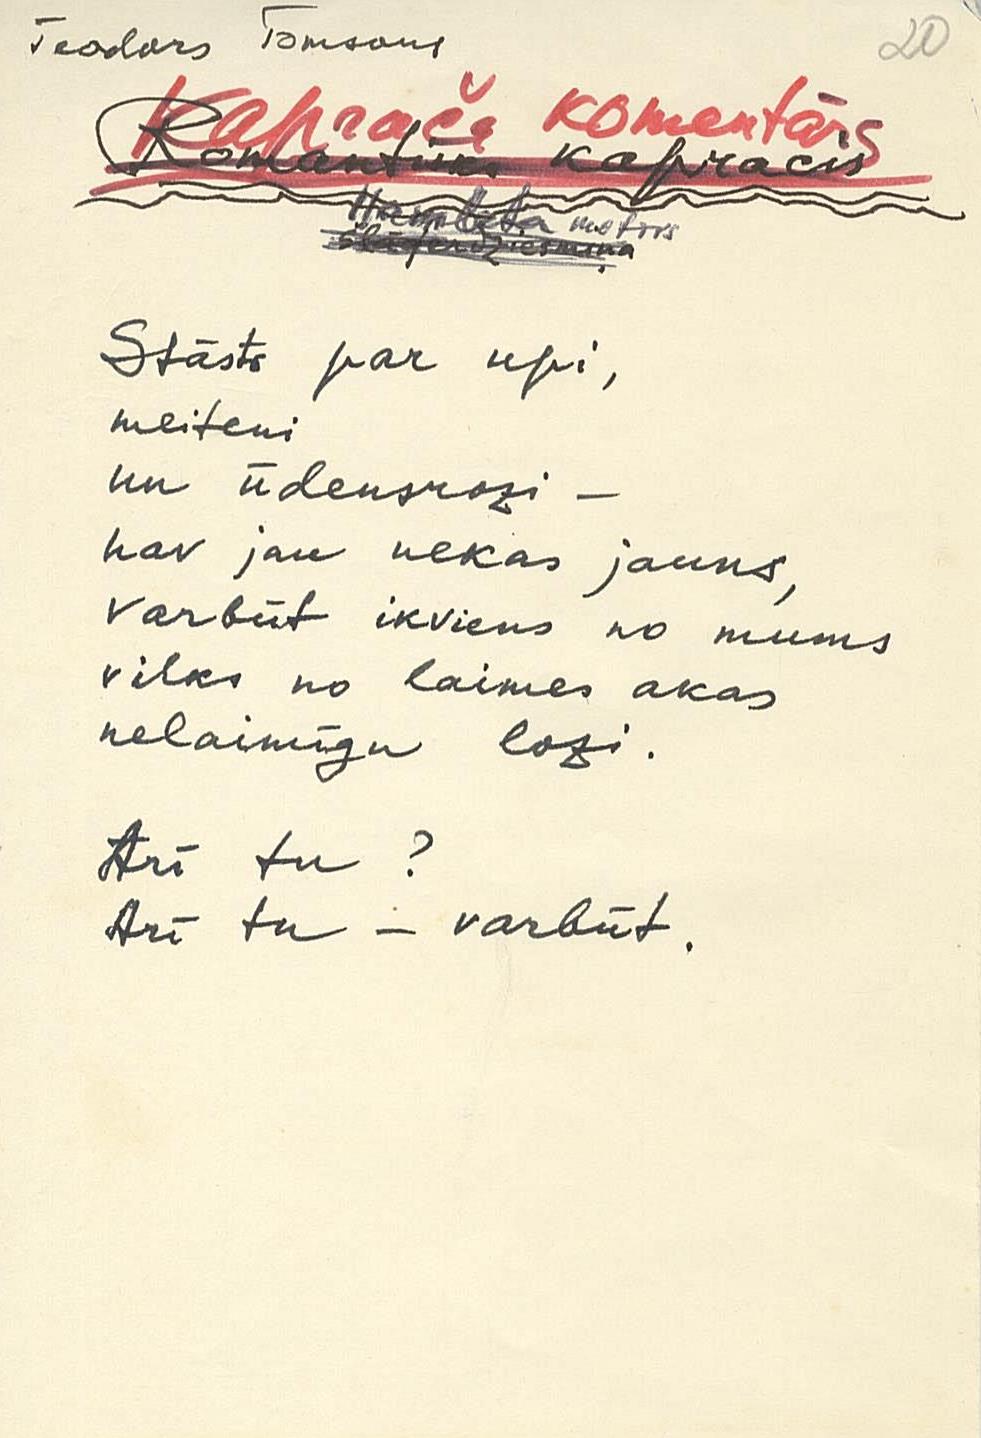 Teodors Tomsons
20
Kaprače komentārs
Romantisks kapracis
Hamleta motivs
Šlāgerdziesmiņa
Stāsts par upi,
meiteni
un ūdensrozi –
nav jau nekas jauns,
varbūt ikviens no mums
vilks no laimes akas
nelaimīgu lozi.
Arī tu ?
Arī tu – varbūt.